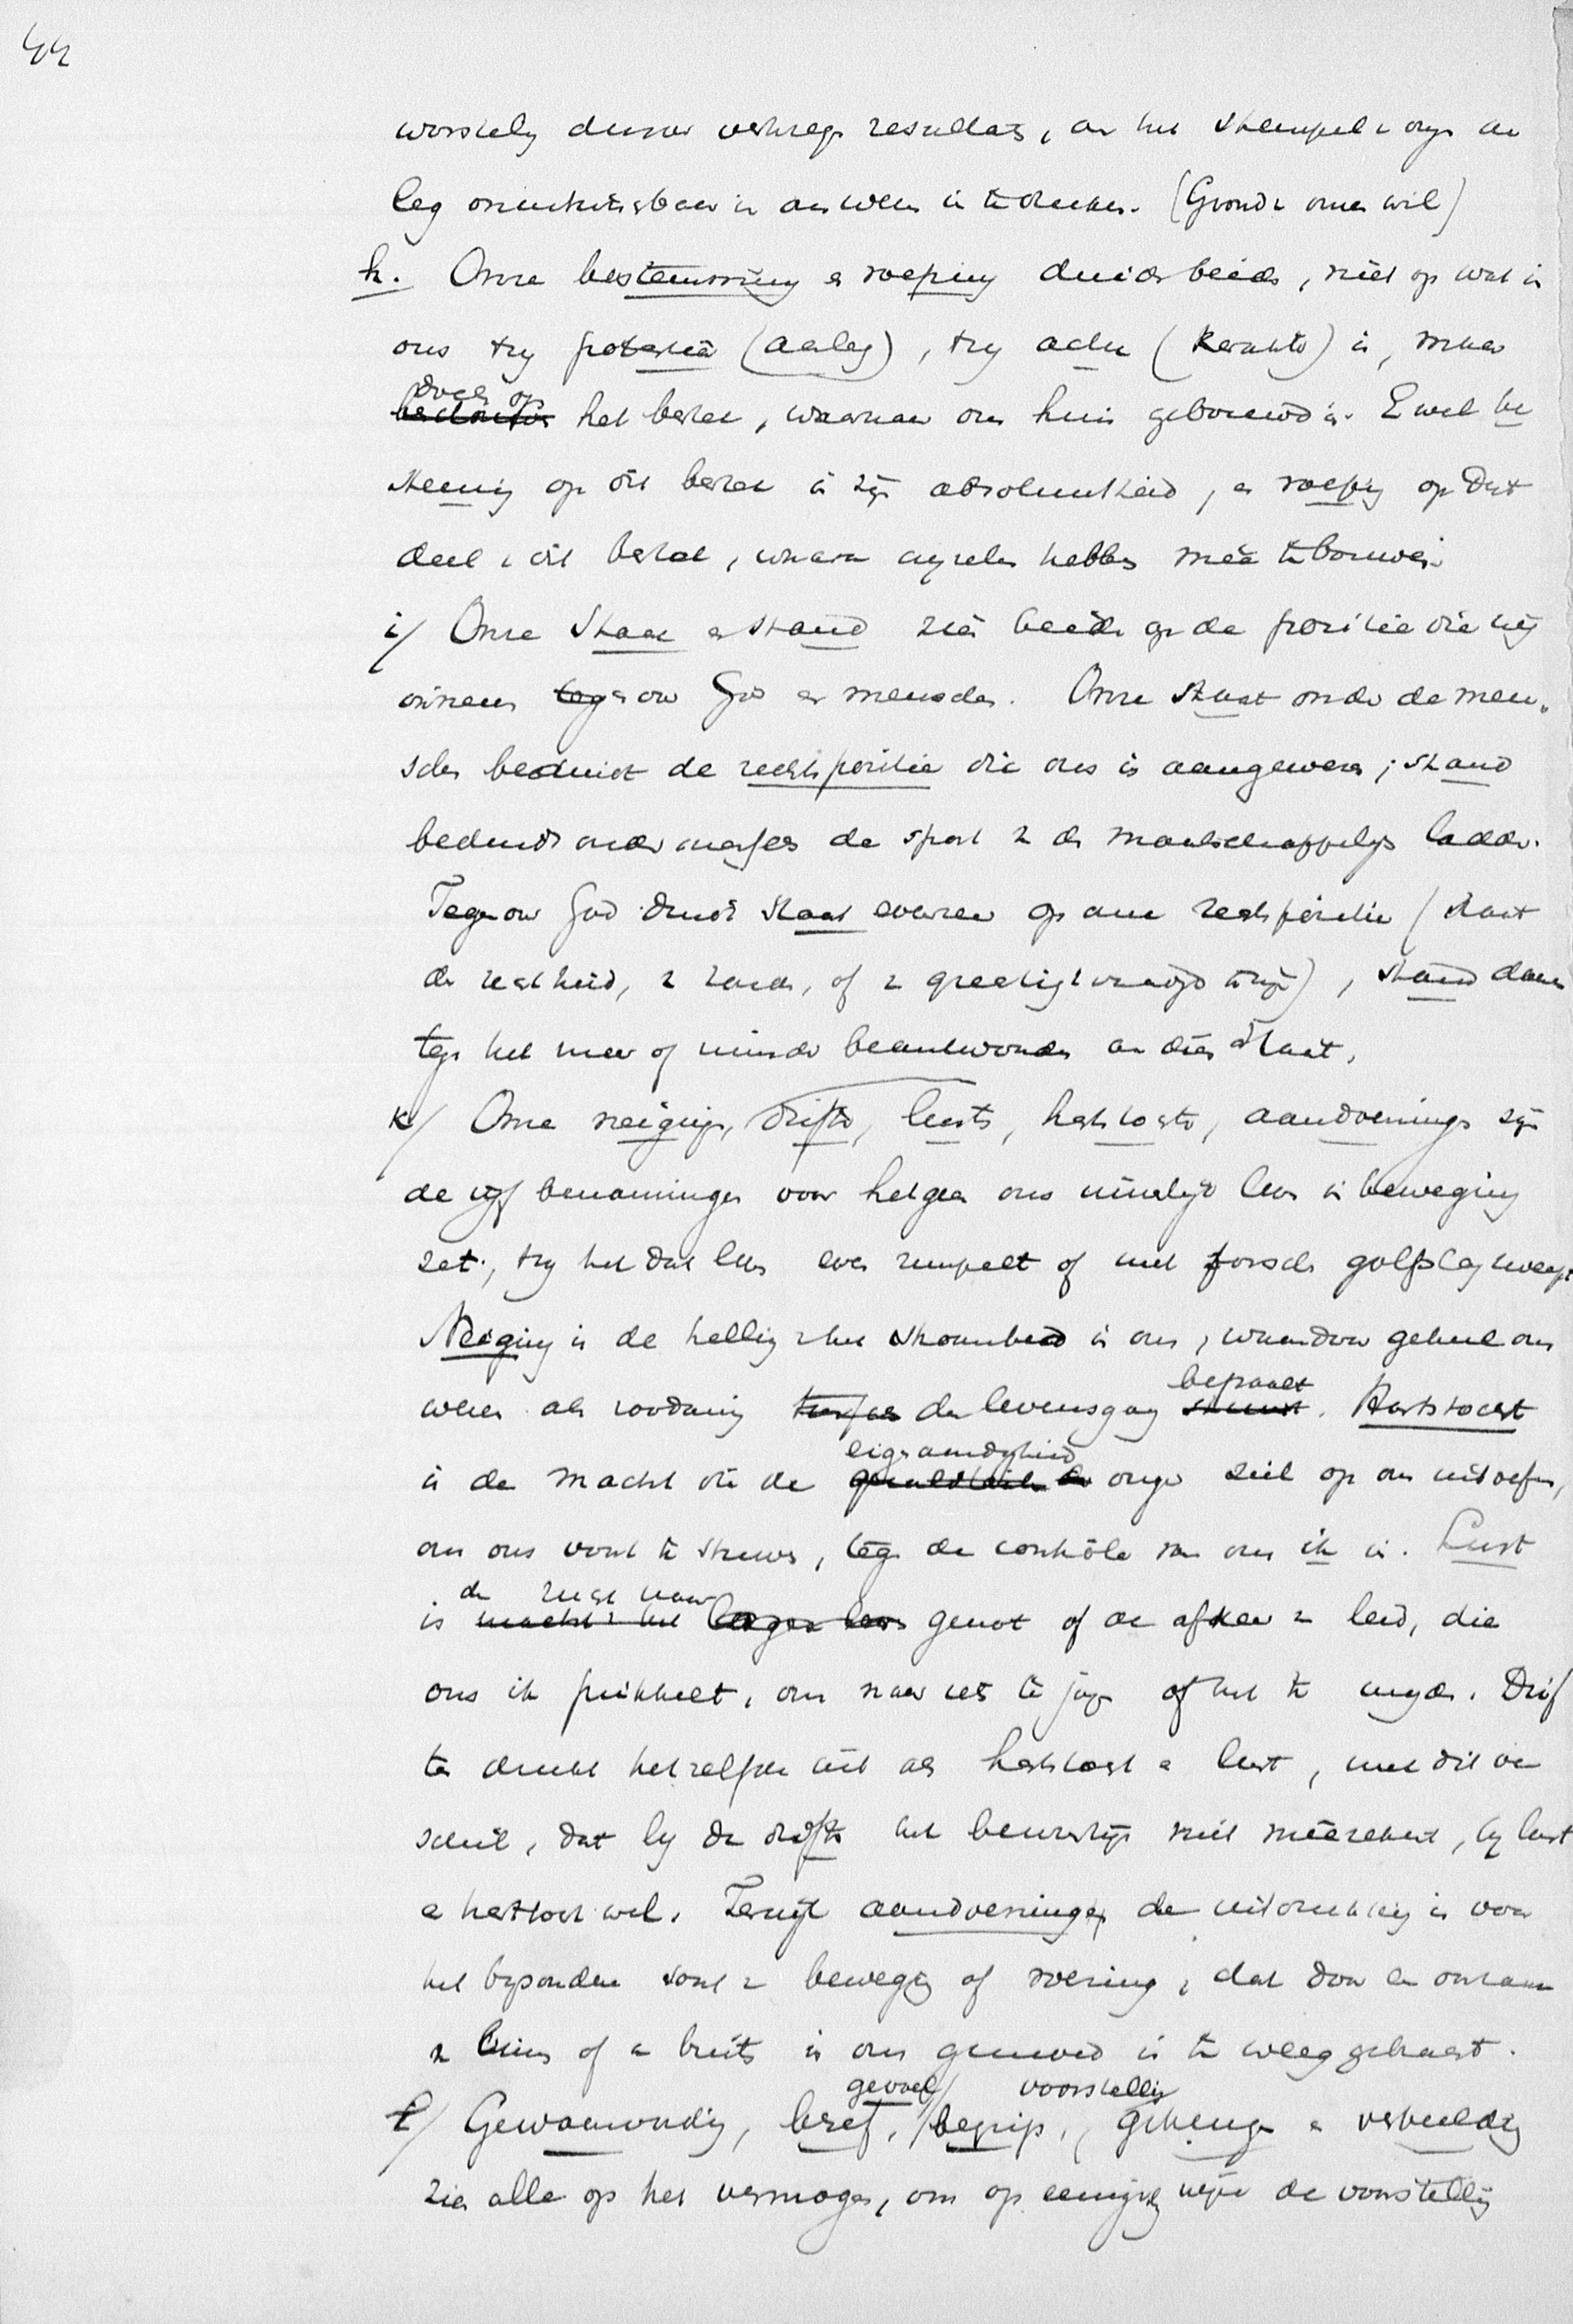 44
worstely dezer verkrege resultats, en het stempel v onze aa
leg onuitwisbaar in ons wezen in te drukken. (Grond v onzen wil)
h. Onze bestemming e roeping duiden beide, niet op wat in
ons tzy potentiâ (aanleg), tzy actu (karakter) is, maar
doch op het bestek, waarnaar ons huis gebouwd is. E wel be
stemming op dit bestek in zijn absoluutheid, e roeping op dat
deel v dit bestek, waaraan wy zelven hebben meê te bouwen.
i/ Onze staat e stand zien beide op de positie die wij
innemen tegenover God en menschen. Onze staat onder de men-
schen beduidt de rechtspositie die ons is aangewezen; stand
beduidt onder menschen de sport v de maatschappelijke ladder.
Tegenover God duidt staat evenzeer op onze rechtspositie (staat
der rechtheid, v zonde, of v gerechtigheid), stand daaren
tegen het meer of minder beantwoorden aan dien staat.
k/ Onze neiging, driften, lusts, hartstocht, aandoenings zijn
de vijf benamingen voor hetgeen ons innerlijk leven in beweging
zet, tzy het dat leven even rimpelt of met forsche golfslag zweept.
Neiging is de helling v het stroombed in ons, waardoor geheel ons
wezen als zoodanig de levensgang bepaalt. Hartstocht
is de macht die de eigenaardigheid onzer ziel op ons uitoefen,
om ons voort te stuwen, tegen de contrôle van ons ik in. Lust
is de zucht naar genot of de afkeer v leed, die
ons ik prikkelt, om naar iets te jagen of het te mijden. Drif
ten drukt hetzelfde uit als hartstocht e lust, met dit ver
schil, dat by de drift het bewustzijn niet meêrekent, by lust
e hartstocht wel. Terwijl aandoeningen de uitdrukking is voor
het byzondere soort v beweging of roering, dat door een oorzaak
v binnen of v buiten in ons gemoed is te weeg gebracht.
l/ Gewaarwording, besef, gevoel, begrip, voorstelling, geheugen e verbeelding
zien alle op het vermogen, om op eenigerlei wijze de voorstelling